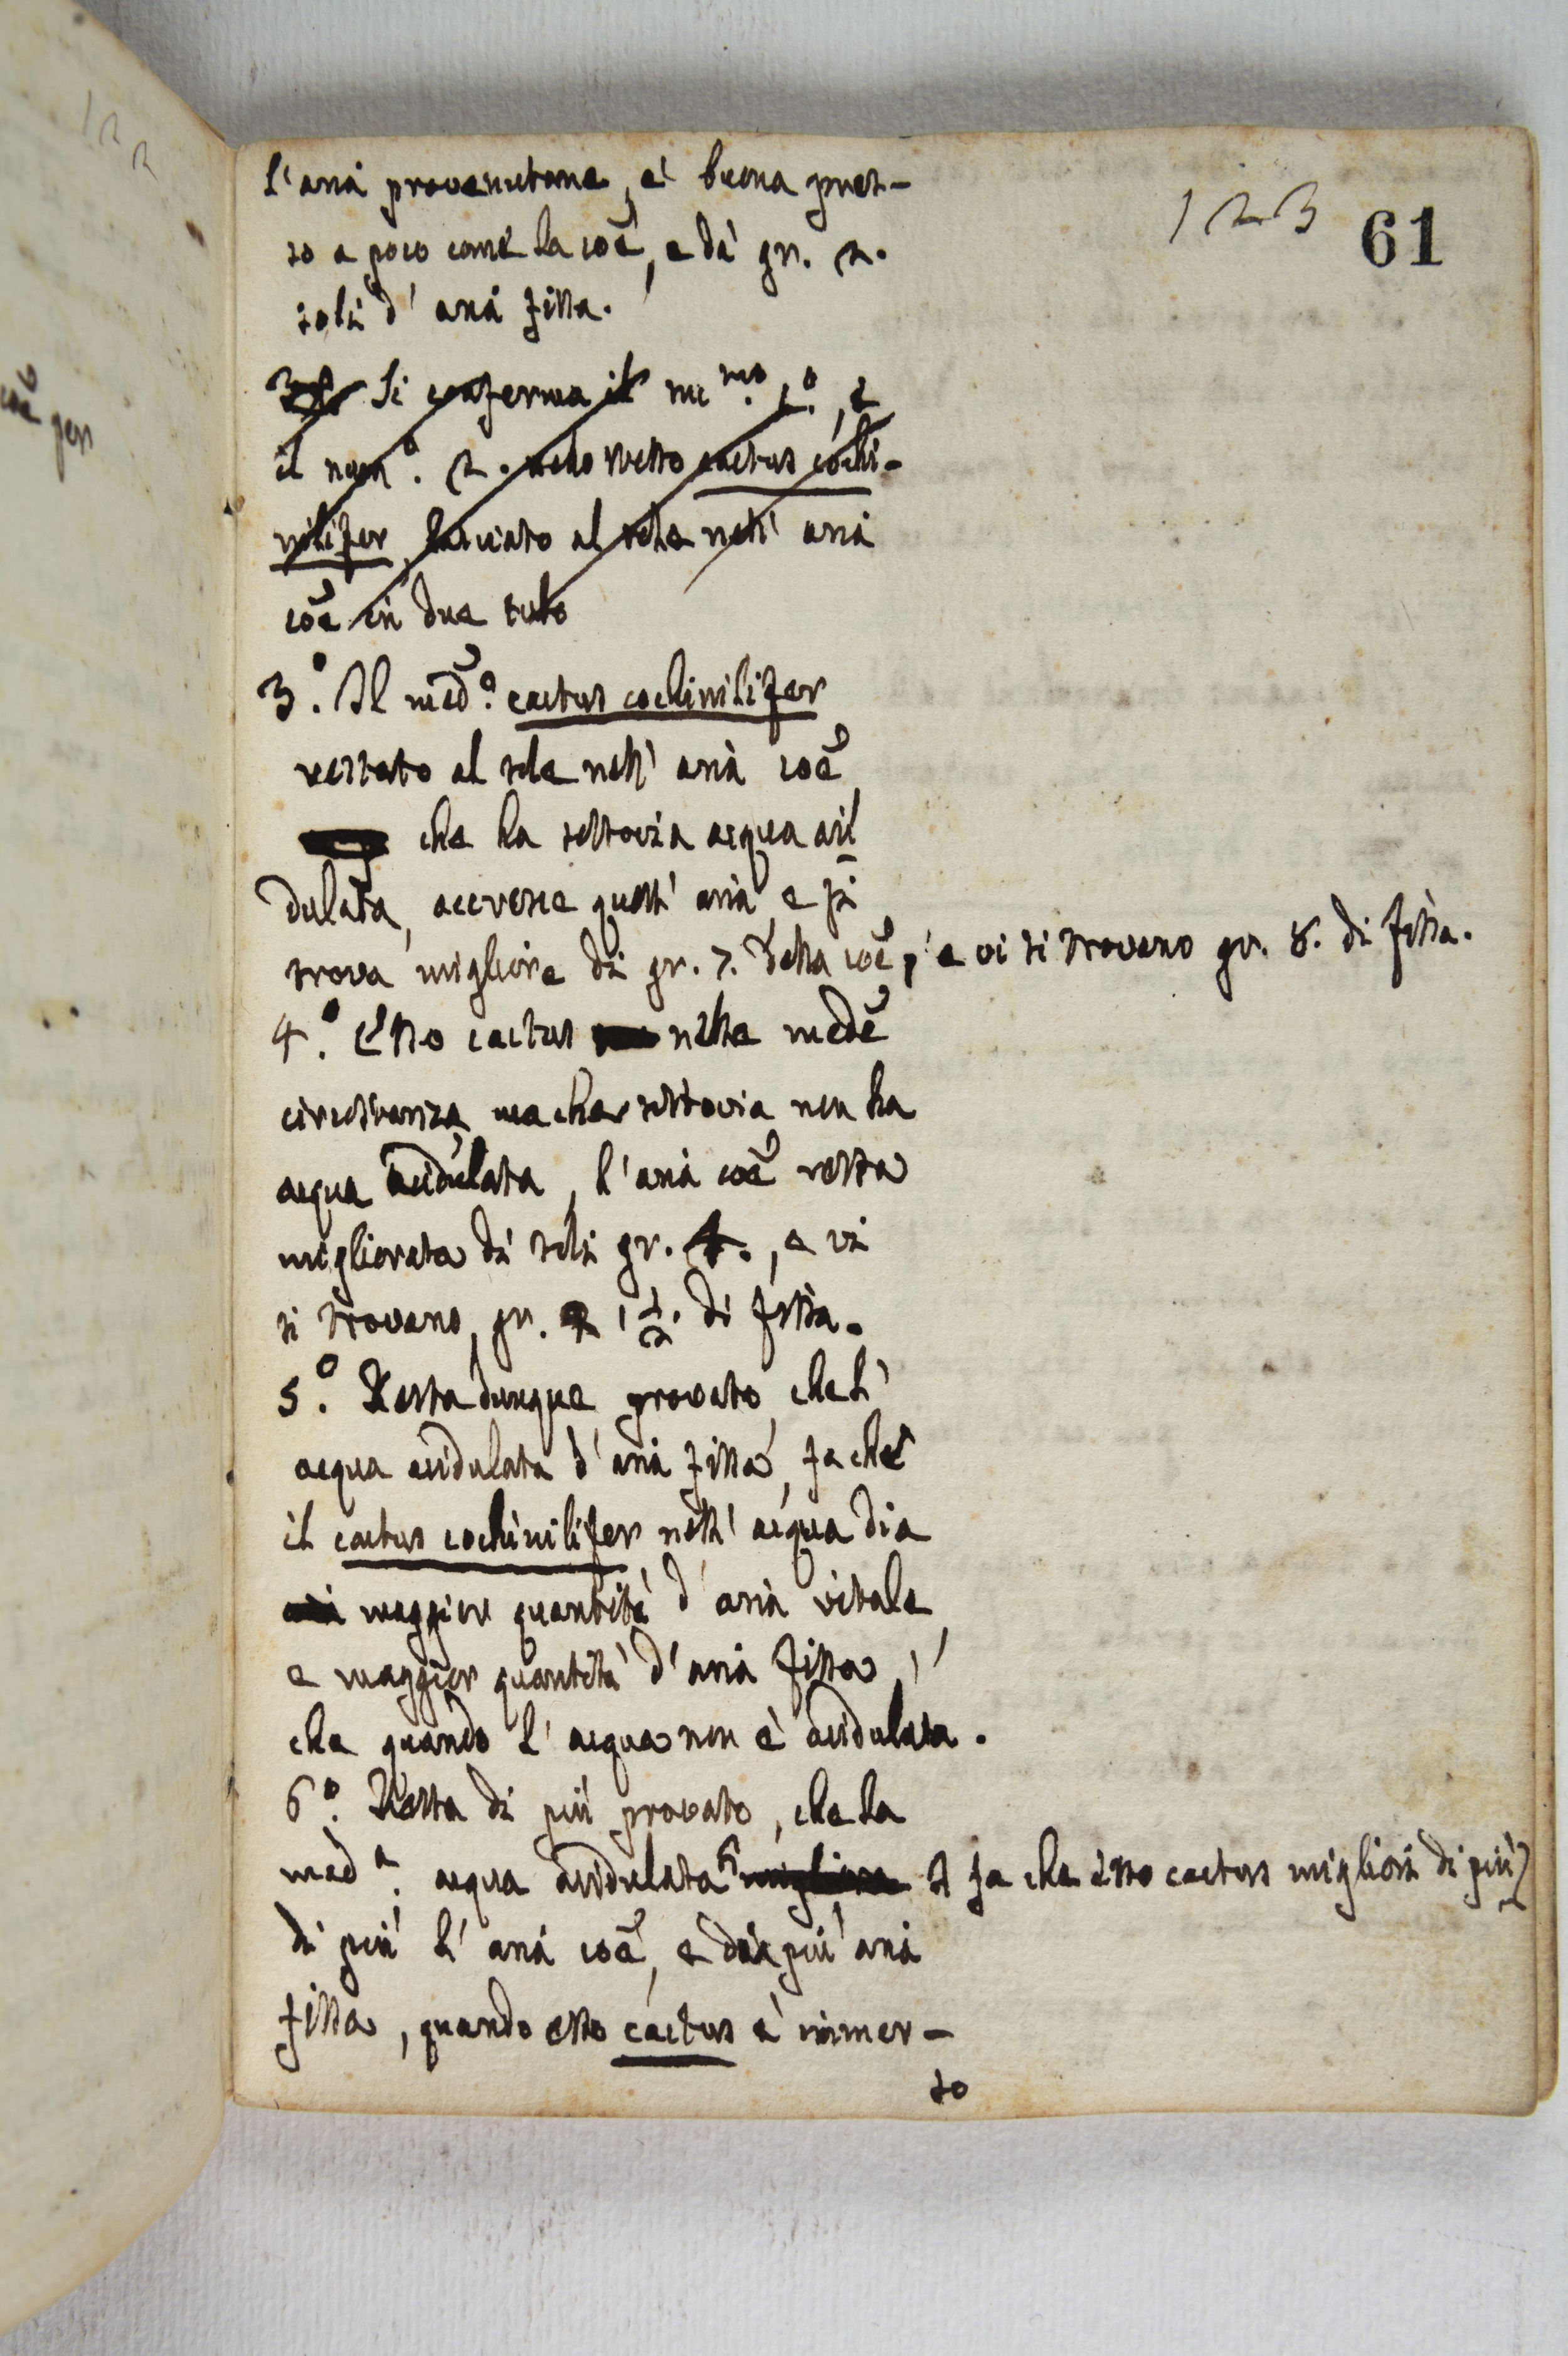 123 61
l'aria provenutane, è buona pres-
so a poco come la coe, e dà gr. 2.
soli d'aria fissa.
Si conferma il nu.mo 1.o, e
il num.o 2. nello stesso cactus cochi-
nilifer lasciato al sole nell'aria
coe in due tubo
3.o Il med.o cactus cochinilifer
restato al sole nell'aria coe
che ha sottovia acqua aci
dulata, accresce quest'aria e si
trova migliore di gr. 7. della coe, e vi si trovano gr. 8. di fissa.
4.o Esso cactus nelle mede
circostanza, ma che sottovia non ha
acqua acidulata, l'aria coe resta
migliorata di soli gr. 4., e vi
si trovano gr. 1 1/2. di fissa.
5.o Resta dunque provato che l'
acqua acidulata d'aria fissa, fa che
il cactus cochinilifer nell'acqua dia
maggior quantità d'aria vitale,
e maggior quantità d'aria fissa,
che quando l'acqua non è acidulata.
6.o Resta di più provato, che la
med.a acqua acidulata migliora fa che esso cactus migliori di più
di più l'aria coe, e dia più aria
fissa, quando esso cactus è immer-
so